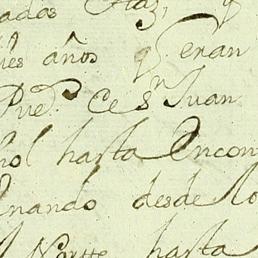 adas
ues años q eran
Pue.º Ce Sn Juan
ñol hasta Encon
nando desde lo
l Nortte hasta